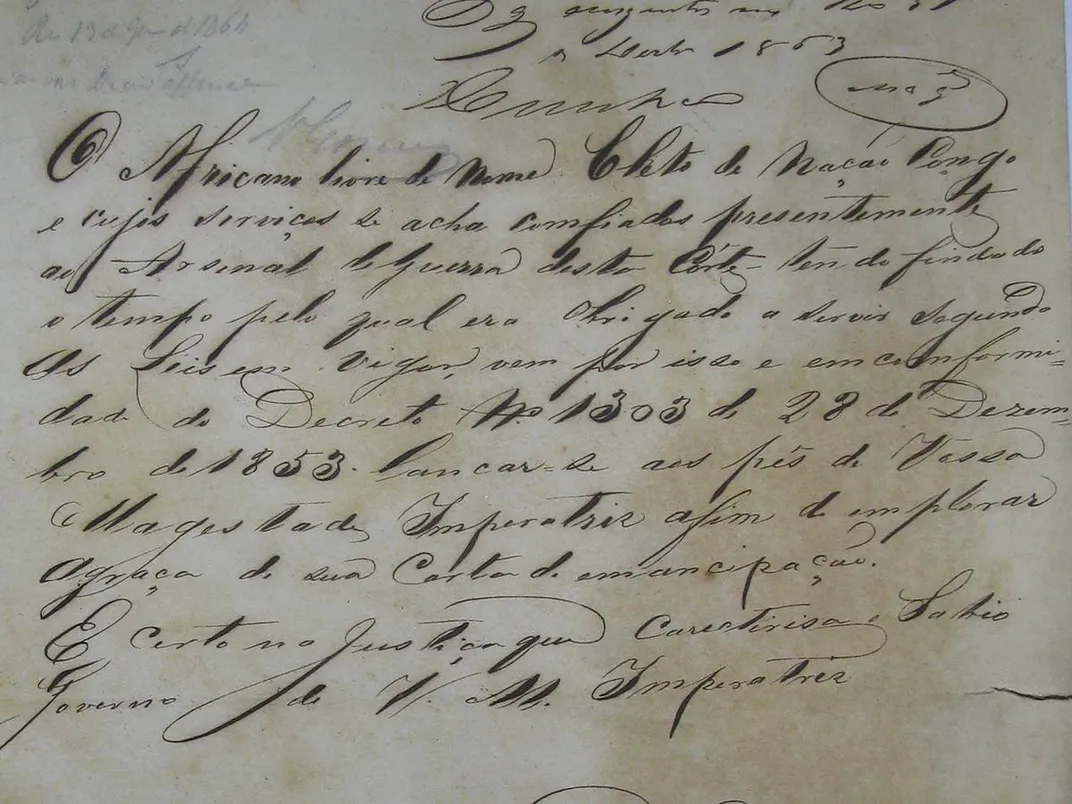 1863
Cunha
O Africano livre de Nome Cleto de Nação Congo
e cujos serviços se acha comfiados presentemente
ao Arsenal de Guerra desta Côrte tendo findado
o tempo pelo qual era Obrigado a servir segundo
As Leis em Vigor, vem por isso e em comformi=
dade do Decreto Nº 1303 de 28 de Dezem=
bro de 1853. lancar=se aos pés de Vossa
Magestade Imperatriz afim de emplorar
Agraça de sua Carta de emancipação.
E certo na Justiça que Carectirisa o Sabio
Governo de V. M. Imperatriz